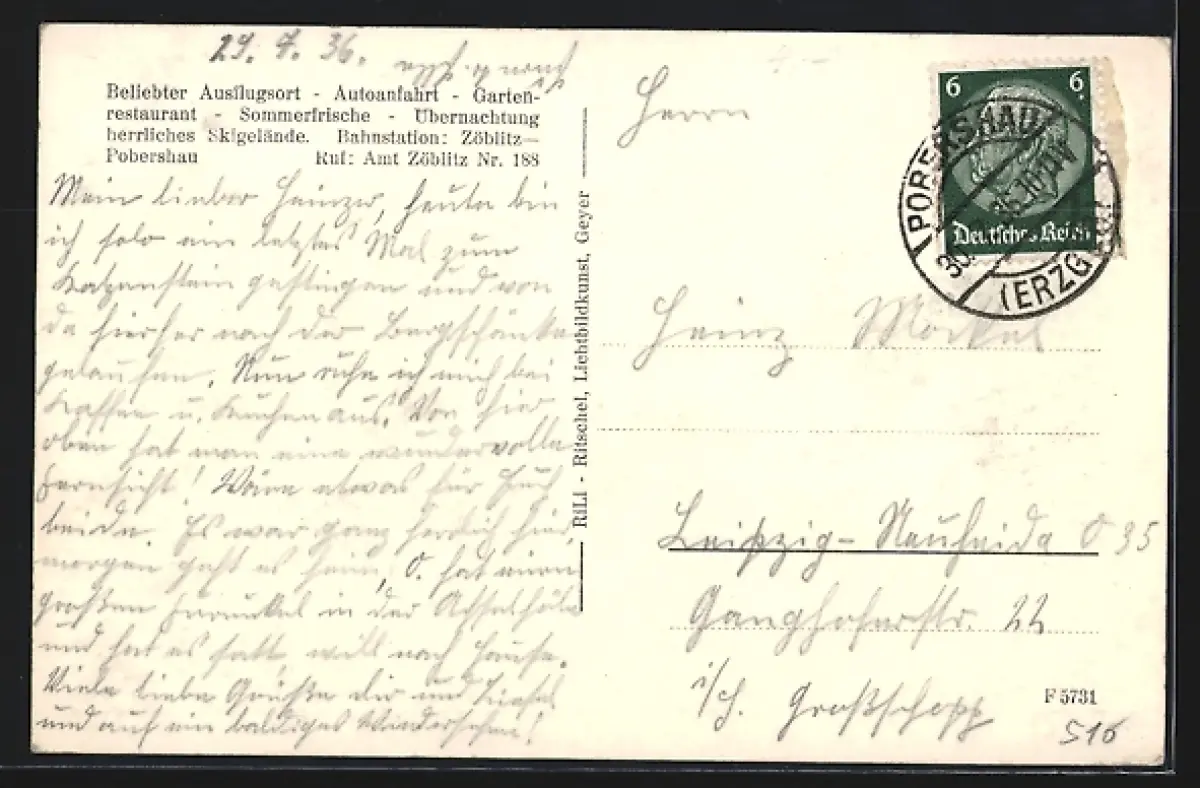 29. 7. 36.
Beliebter Ausflugsort - Autoanfahrt - Garten-
restaurant - Sommerfrische - Übernachtung
herrliches Skigelände. Bahnstation: Zöblitz-
Pobershau Ruf: Amt Zöblitz Nr. 188
Mein lieber Heinzer, heute bin
ich solo ein letztes Mal zum
Katzenstein gestiegen und von
da hierher nach der Bergschänke
gelaufen. Nun ruhe ich mich bei
Kaffee u. Kuchen aus. Von hier
oben hat man eine wundervolle
Fernsicht! Wäre etwas für Euch
beide. Es war ganz herrlich hier,
morgen geht es heim, O. hat einen
großen Furunkel in der Achselhöhle
und hat es satt, will nach Hause.
Viele liebe Grüße dir und
und auf ein baldiges Wiedersehen!
RiLI - Ritschel, Lichtbildkunst, Geyer
Herrn
Heinz Möckel
Leipzig-Neuheida O 35
Ganghoferstr. 22
i/H. Großschopp
6 6
Deutsches Reich
POBERSHAU
(ERZGEB)
F 5731
516